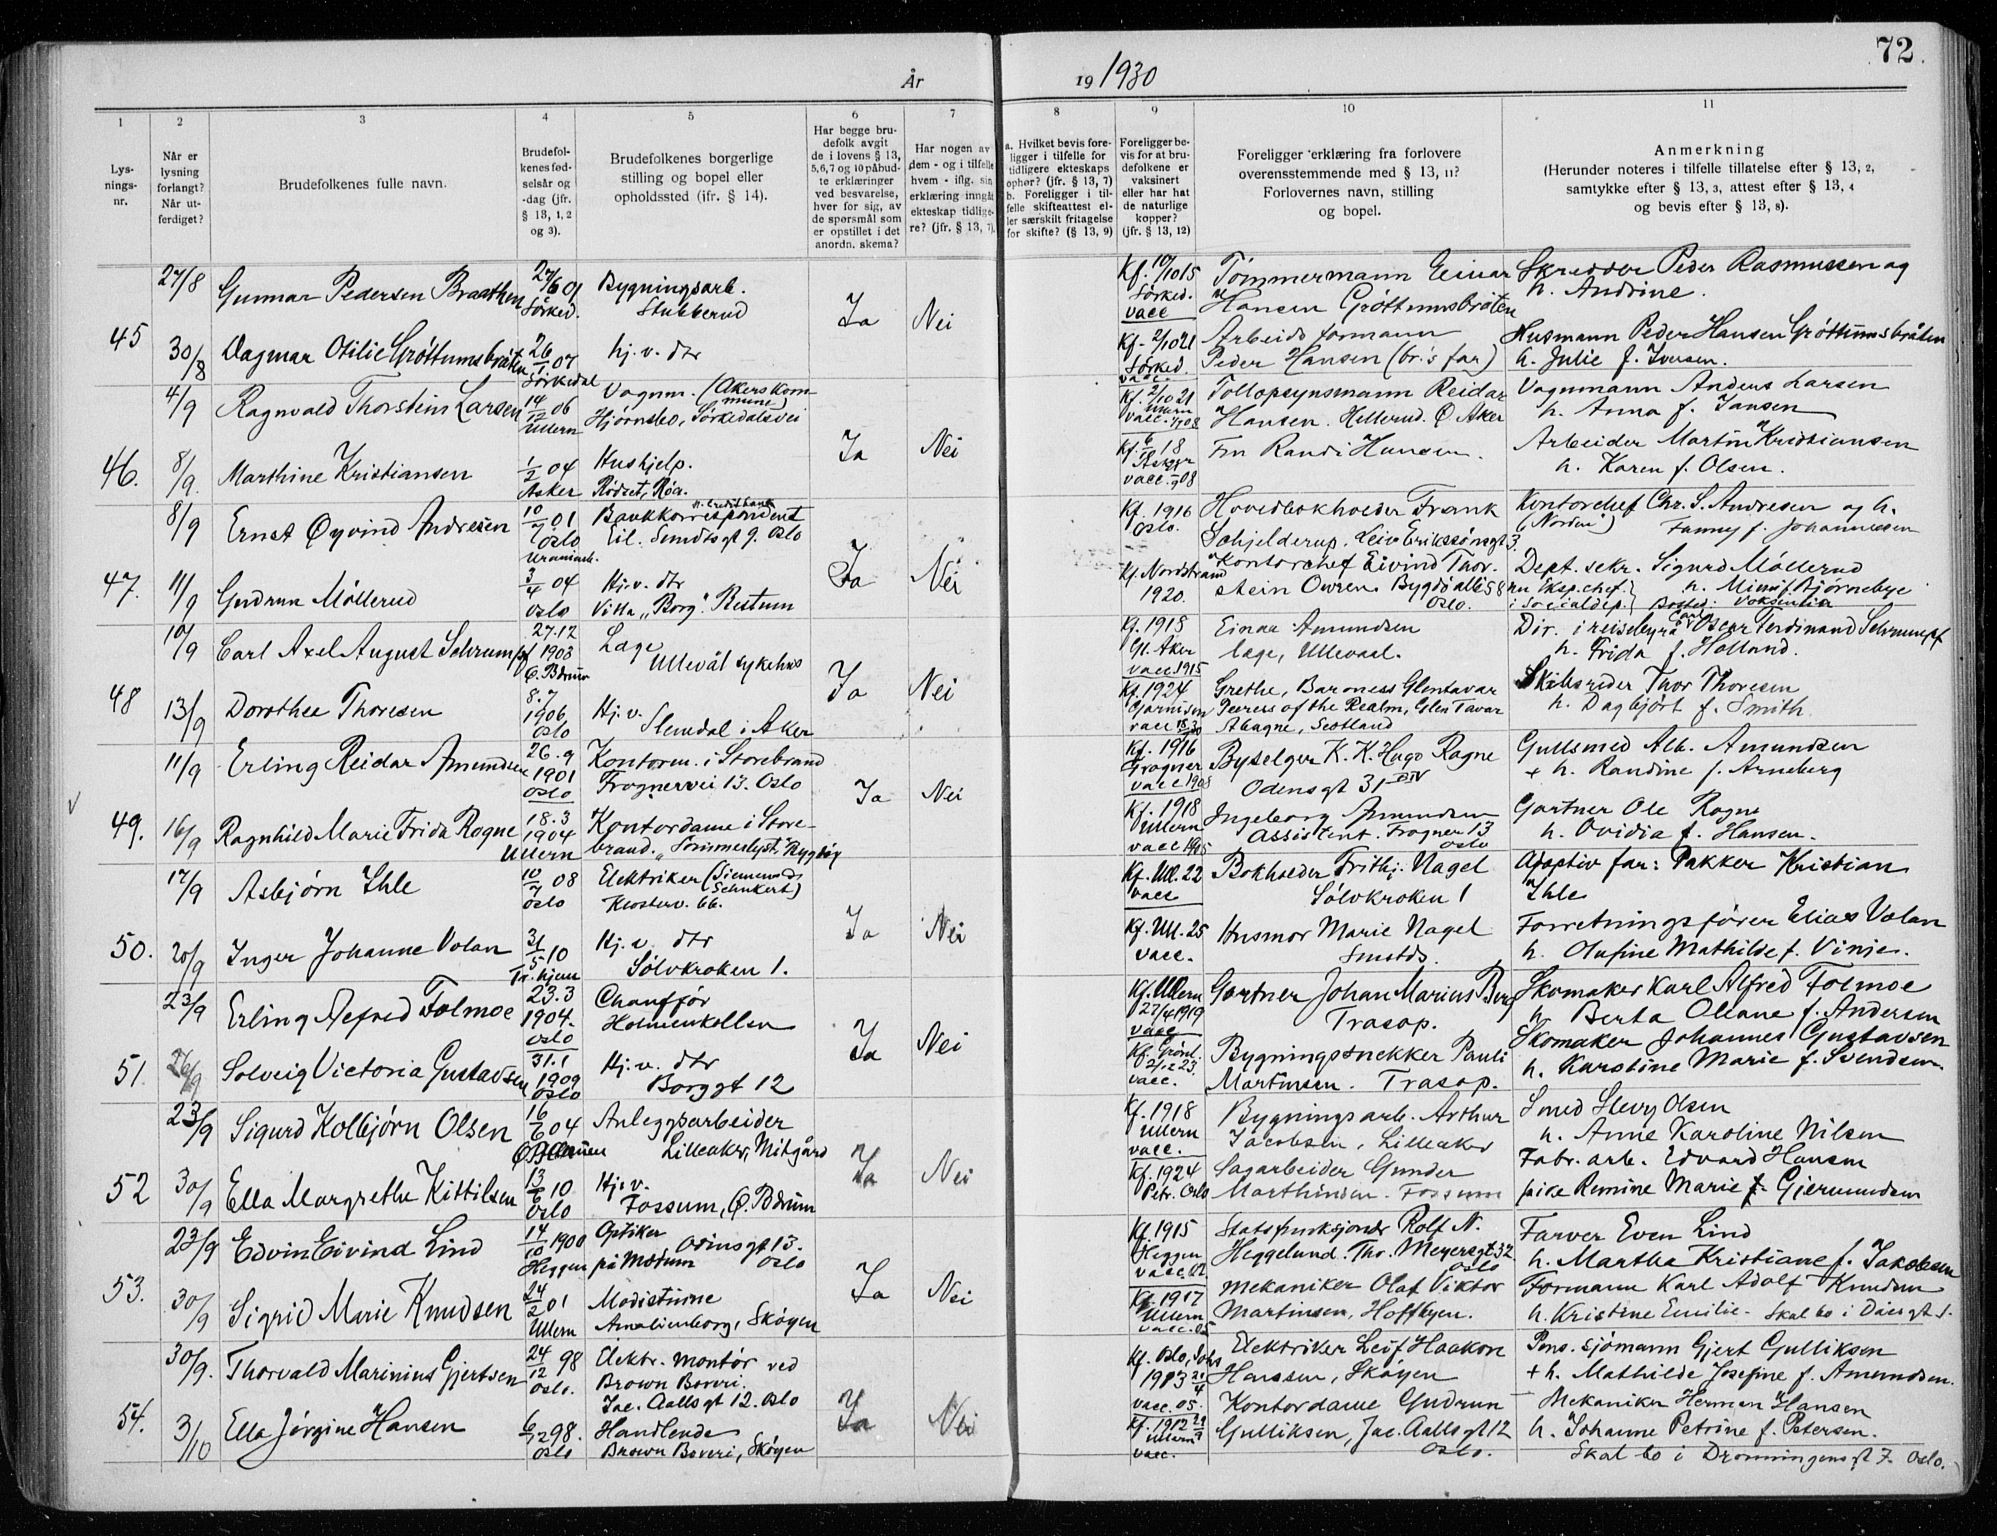 72.
År 19 1930
1 2 3 4 5 6 7 8 9 10 11
Lys-
nings-
nr.
Når er
lysning
forlangt?
Når ut-
ferdiget?
Brudefolkenes fulle navn.
Brudefol-
kenes fød-
selsår og
-dag (jfr.
§ 13, 1, 2
og 3).
Brudefolkenes borgerlige
stilling og bopel eller
opholdssted (ifr. § 14).
Har begge bru-
defolk avgit
de i lovens § 13,
5, 6, 7 og 10 påbud-
te erklæringer
ved besvarelse,
hver for sig, av
de spørsmål som
er opstillet i det
anordn. skema?
Har nogen av
dem - og i tilfelle
hvem - iflg. sin
erklæring inngåt
ekteskap tidlige-
re? (jfr. § 13, 7).
a. Hvilket bevis fore-
ligger i tilfelle for
tidligere ekteskaps
ophør? (jfr. § 13, 7)
b. Foreligger i til-
felle skifteattest el-
ler særskilt fritagelse
for skifte? (§ 13, 9)
Foreligger be-
vis for at bru-
defolkene er
vaksinert
eller har hat
de naturlige
kopper?
(jfr. § 13, 12)
Foreligger erklæring fra forlovere
overensstemmende med § 13, 11?
Forlovernes navn, stilling
og bopel.
Anmerkning
(Herunder noteres i tilfelle tillatelse efter § 13, 2,
samtykke efter § 13, 3, attest efter § 13, 4
og bevis efter § 13, 8).
45
27/8 Gunnar Pedersen Braathen 27/6 01 Sörked. Bygningsarb. Stubberud
Ja Nei
Kf. 10/10 15 Sörked. vacc
Tömmermann Einar Hansen Gröttumsbråten
Skredder Peder Rasmussen og
h. Andrine.
30/8 Dagmar Otilie Gröttumsbråten 26/1 07 Sörkedal hj. v. dtr
Kf. 2/10 21 Sörked. vacc.
Arbeidsformann
Peder Hansen (br.'s far)
Husmann Peder Hansen Gröttumsbråten
h. Julie f. Iversen.
46.
4/9 Ragnvald Thorstein Larsen 14/12 06 Ullern Vognm. (Akers kommune)
Hjørnsbo, Sørkedalsvei
Ja Nei
Kf. 2/10 21 Ullern vacc.
Tollopsynsmann Reidar
Hansen. Hellerud. Ø. Aker
Vognmann Anders Larsen
h. Anna f. Jansen
8/9. Marthine Kristiansen 1/2 04 Asker Hushjelp.
Rödset, Röa.
18 Asker vacc. 08
Fru Randi Hansen.
Arbeider Martin Kristiansen
h. Karen f. Olsen.
47.
8/9 Ernst Øyvind Andresen 10/7 01 Oslo Bankkorrespondent
Eil. Sundtsgt 9. Oslo
Ja Nei
Kf. 1916 Oslo.
Hovedbokholder Frank
Schjelderup. Leiv Erikssönsgt 3.
Kontorchef Chr. S. Andresen og h.
(Norden) Fanny f. Johannessen
11/9 Gudrun Möllerud 3/4 04 Oslo Hj. v. dtr
Villa "Borg". Bestum
Kf. Nordstrand 1920.
Kontorchef Eivind Thor-
stein Owren. Bygdö allé 58 Oslo.
Dept. sekr. Sigurd Möllerud
nu Eksp. chef i Socialdep. Bosted: Voksenlia
48
10/9 Carl Axel August Schrumpf 27.12 1903 Ö. Bærum Læge
Ullevål sykehus
Ja Nei
Kf. 1918 Gl. Aker vacc. 1915
Einar Amundsen
læge, Ullevaal.
Dir. i reisebyrå Carl Oscar Ferdinand Schrumpf
h. Frida f. Holland.
13/9 Dorothea Thoresen 8.7 1906 Oslo Hj. v.
Slemdal i Aker
Kf. 1924
Grethe, Baroness Glentavar
Peeress of the Realm, Glen Tavar
Abagne, Scotland
Skibsreder Thor Thoresen
h. Dagbjört f. Smith
49.
11/9 Erling Reidar Amundsen 26.9 1901 Oslo Kontorm. i Storebrand
Frognervei 13. Oslo
Ja Nei
Kf. 1916 Frogner vacc 1908
Byselger K. K. Hugo Ragne
Odensgt 31 IV
Gullsmed Alb. Amundsen
+ h. Randine f. Arneberg
16/9 Ragnhild Marie Frida Rogne 18.3 1904 Ullern Kontordame i Store-
brand. "Sommerlyst", Bygdöy
Kf. 1918 Ullern
Ingeborg Amundsen
Assistent. Frogner 13 Oslo
Gartner Ole Rogne
h. Ovidia f. Hansen.
50.
17/9 Asbjørn Ihle 10/7 08 Oslo Elektriker (Siemens Schukert)
Klosterv. 66.
Ja Nei
Kf. Ull. 22 vacc
Bokholder Frithj. Nagel
Sölvkroken 1
Adoptiv far: Pakker Kristian
Ihle
20/9 Inger Johanne Volan 31/5 10 Tr. hjem Hj. v. dtr
Sölvkroken 1.
Kf. Ull. 25 vacc.
Husmor Marie Nagel
Smstds.
Forretningsförer Elias Volan
h. Olufine Mathilde f. Vinje.
51.
23/9 Erling Alfred Folmoe 23.3 1904. Oslo Chauffør
Holmenkollen
Ja Nei
Kf. Ullern 27/4 1919 vacc
Gartner Johan Marius Berg
Trasop.
Skomaker Karl Alfred Folmoe
h. Berta Oliane f. Andersen
26/9 Solveig Victoria Gustavsen 31.1 1909 Oslo Hj. v. dtr
Borggt 12
Kf. Grönl. vacc.
Bygningssnekker Pauli
Martinsen. Trasop.
Skomaker Johannes Gustavsen
h. Karoline Marie f. Svendsen
52
23/9 Sigurd Kolbjørn Olsen 16/6 04 Anleggsarbeider
Lilleaker, Nitgård
Ja Nei
Kf. 1918 Ullern vacc.
Bygningsarb. Arthur
Jacobsen, Lilleaker
Smed Olsen
h. Anne Karoline Nilsen
30/9 Ella Margrethe Kittilsen 13/6 10 Oslo Hj. v.
Fossum, Ø. Bærum
Kf. 1924 Petr. Oslo
Sagarbeider Gunder
Marthinsen. Fossum
Fabr. arb. Edvard Hansen
pike Remine Marie Gjermundsen
53.
23/9 Edvin Eivind Lind 14/10 1900 Heggen på Modum Optiker
Odinsgt 13. Oslo
Ja Nei
Kf. 1915 Heggen vacc. 02
Statsfunksjonær Rolf N.
Heggelund. Th. Meyersgt 32 Oslo
Farver Even Lind
h. Martha Kristiane f. Jakobsen
30/9 Sigrid Marie Knudsen 24/2 01 Ullern Modistinne
Amalienborg, Skøyen
Kf. 1917 Ullern vacc. 05
Mekaniker Olaf Viktor
Martinsen, Hoffbyen.
Formann Karl Adolf Knudsen
h. Kristine Emilie.
54.
30/9. Thorvald Marinius Gjertsen 24/12 98 Oslo. Elektr. montør ved
Brown Boveri.
Jac. Aallsgt 12. Oslo
Ja Nei
Kf. Oslo, Johs 1913 vacc. 05.
Elektriker Leif Haakon
Hanssen, Skøyen
Pens. sjömann Gjert Gulliksen
+ h. Mathilde Josefine f. Amundsen.
3/10 Ella Jörgine Hansen 6/12 98. Oslo Handlende
Brown Boveri, Skøyen
Kf. 1912 Ullern vacc.
Kontordame Gudrun
Gulliksen, Jac. Aallsgt 12 Oslo.
Mekaniker Herman Hansen
h. Johanne Petrine f. Petersen.
Skal bo i Dronningensgt 7. Oslo.